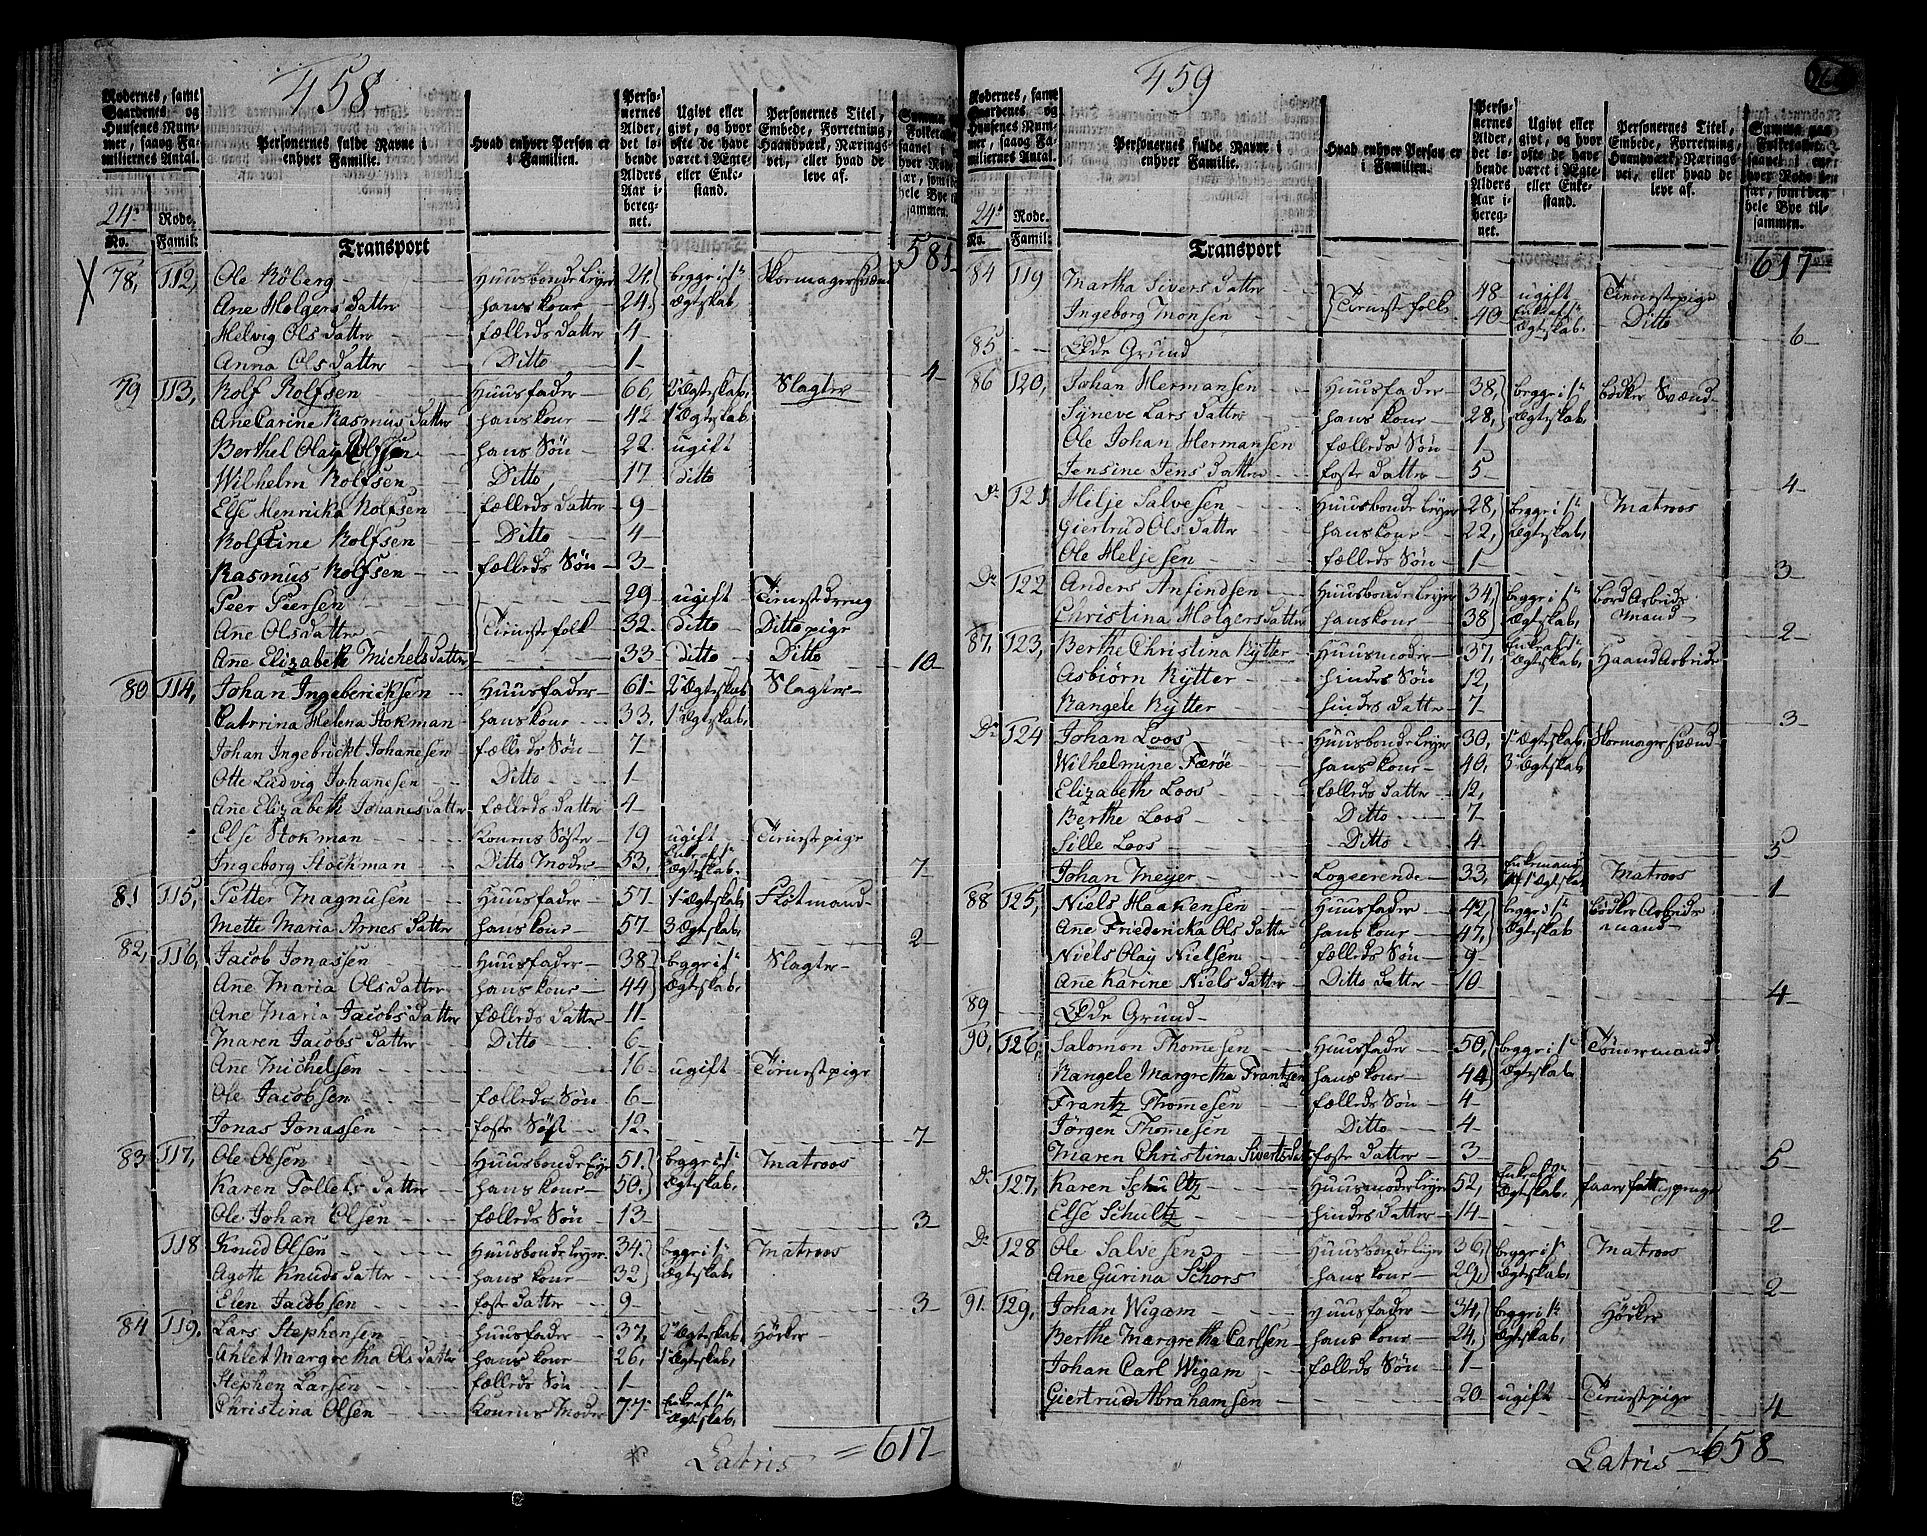 458
Rodernes, samt Gaardenes, og Huusenes Nummer, saaog Familiernes Antal.
Personernes fulde Navne i enhver Familie.
Hvad enhver Person er i Familien.
Personernes Alder, det løbende Alders Aar iberegnet.
Ugivt eller givt, og hvor ofte de have været i Ægte- eller Enkestand.
Personernes Titel, Embede, Forretning, Haandværk, Næringsvei, eller hvad de leve af.
24de Rode.
No. Famil:
Transport 581
78, 112, Ole Röberg Huusbonde Leyer 24 begge i 1te Skomager Svend
Ane Holgers datter hans kone 24 Ægteskab,
Helvig Ols datter fælleds datter 4
Anna Ols datter Ditto 1 4
79 113, Rolf Rolfsen Huusfader 66, 2 Ægteskab, Slagter
Ane Carine Rasmus datter hans kone 42 1te Ægteskab,
Berthel Olay Rolfsen hans Søn 22 ugift
Wilhelm Rolfsen Ditto 17 ditto
Else Henricka Rolfsen fælleds datter 9
Rolfine Rolfsen Ditto 4
Rasmus Rolfsen fælleds Søn 3
Peer Peersen 29 ugift Tienestdreng
Ane Olsdatter Tienestefolk 32 ditto Ditto pige
Ane Elizabeth Michels datter 33 ditto Ditto 10
80 114, Johan Ingebericksen Huusfader 61 2 Ægteskab Slagter
Catrina Helena Stokman hans kone 33, 1te Ægteskab,
Johan Ingebrickt Johanesen fælleds Søn 7
Otte Ludvig Johanesen Ditto 1
Ane Elizabeth Johanes datter fælleds datter 4
Else Stokman Konens Søster 19 ugift Tienestpige
Ingeborg Stockman Ditto Moder 53, Enke af 1te Ægteskab, 7
81 115, Petter Magnusen Huusfader 57 1te Ægteskab Flotmand
Mette Maria Arnes datter hans kone 57 3 Ægteskab, 2
82, 116, Jacob Jonassen Huusfader 38 begge i 1te Slagter
Ane Maria Olsdatter hans kone 44 Ægteskab,
Ane Maria Jacobs datter fælleds datter 11
Maren Jacobs datter Ditto 6
Ane Michelsen 16 ugift Tienestpige
Ole Jacobsen fælleds Søn 6
Jonas Jonassen foste Søn 12 7
83 117, Ole Olsen Huusbonde Leyer 51 begge i 1te Matroos
Karen Tollefs datter hans kone 50 Ægteskab,
Ole Johan Olsen fælleds Søn 13 3
118 Knud Olsen Huusbonde Leyer 34 begge i 1te Matroos
Agotte Knuds datter hans kone 32 Ægteskab,
Elen Jacobsen foste datter 9 3
84 119, Lars Stephensen Huusfader 37, 2 Ægteskab, Hörker
Ahlet Margretha Ols datter hans kone 26, 1te Ægteskab,
Stephen Larsen fælleds Søn 1
Christina Olsen Konens Moder 77 Enke af 1te Ægteskab,
Latris = 617
459
Rodernes, samt Gaardenes, og Huusenes Nummer, saaog Familiernes Antal.
Personernes fulde Navne i enhver Familie.
Hvad enhver Person er i Familien.
Personernes Alder, det løbende Alders Aar iberegnet.
Ugivt eller givt, og hvor ofte de have været i Ægte- eller Enkestand.
Personernes Titel, Embede, Forretning, Haandværk, Næringsvei, eller hvad de leve af.
24de Rode.
No. Famil.
Transport 617
84 119 Martha Sivers datter 48 ugift Tienestpige
Ingeborg Monsen Tieneste folk 40 Enke af 1te Ægteskab, Ditto 6
85 Øde Grund
86 120, Johan Hermansen Huusfader 38, begge i 1te bödker Svænd
Synneve Lars datter hans kone 28, Ægteskab,
Ole Johan Hermansen fælleds Søn 1
Jensine Jens datter foste datter 5 4
Do 121 Helje Salvesen Huusbonde Leyer 28, begge i 1te Matroos
Giertrud Ols datter hans kone 22, Ægteskab,
Ole Heljesen fælleds Søn 1 3
Do 122 Anders Anfindsen Huusbonde Leyer 34, begge i 1te bord Arbeids
Christina Holgers datter hans kone 38 Ægteskab, mand 2
87, 123, Berthe Christina Rytter Huusmoder 37, Enke af 1te Ægteskab, Haand Arbeide
Asbiörn Rytter hindes Søn 12,
Rangele Rytter hindes datter 7 3
Do 124 Johan Loos Huusbonde Leyer 30, 1te Ægteskab, Skomager Svænd
Wilhelmine Færöe hans kone 40, 3 Ægteskab
Elizabeth Loos fælleds datter 12,
Berthe Loos Ditto 7
Sille Loos Ditto 4 5
Johan Meyer Logerende 33, Enkemand af 1te Ægteskab Matroos 1
88 125, Niels Haakensen Huusfader 42, begge i 1te bödker Arbeids
Ane Friedericka Ols datter hans kone 47, Ægteskab mand
Niels Olay Nielsen fælleds Søn 9
Ane Karine Niels datter Ditto datter 10 4
89 Øde Grund
90, 126, Salomon Thomesen Huusfader 50, begge i 1te Tönnermand
Rangele Margretha Frantzen hans kone 44 Ægteskab,
Frantz Thomesen fælleds Søn 4
Jörgen Thomesen Ditto 4
Maren Christina Siverts dat foste datter 3 5
Do 127, Karen Schultz Huusmoder Leyer 52, Enke af 1te Ægteskab, faar fattigpenge
Else Schultz hindes datter 14 2
Do 128 Ole Salvesen Huusbonde Leyer 36, begge i 1te Matroos
Ane Gurina Schors hans kone 29, Ægteskab, 2
91 129, Johan Wigam Huusfader 34, begge i 1te Hörker
Berthe Margretha Carlsen hans kone 24, Ægteskab,
Johan Carl Wigam fælleds Søn 1
Giertrud Abrahamsen 20 ugift Tienestpige 4
Latris 658